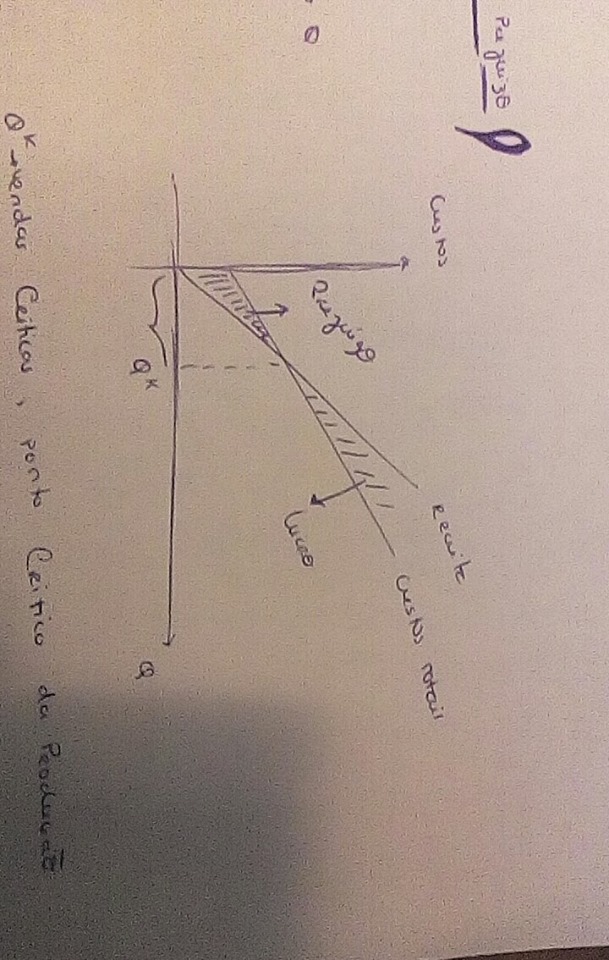 Prejuizo
Custos
Receita
Custos totais
Prejuizo
Q
Lucro
Q^K
Q
Q^K → vendas Criticas, ponto Critico da Produção